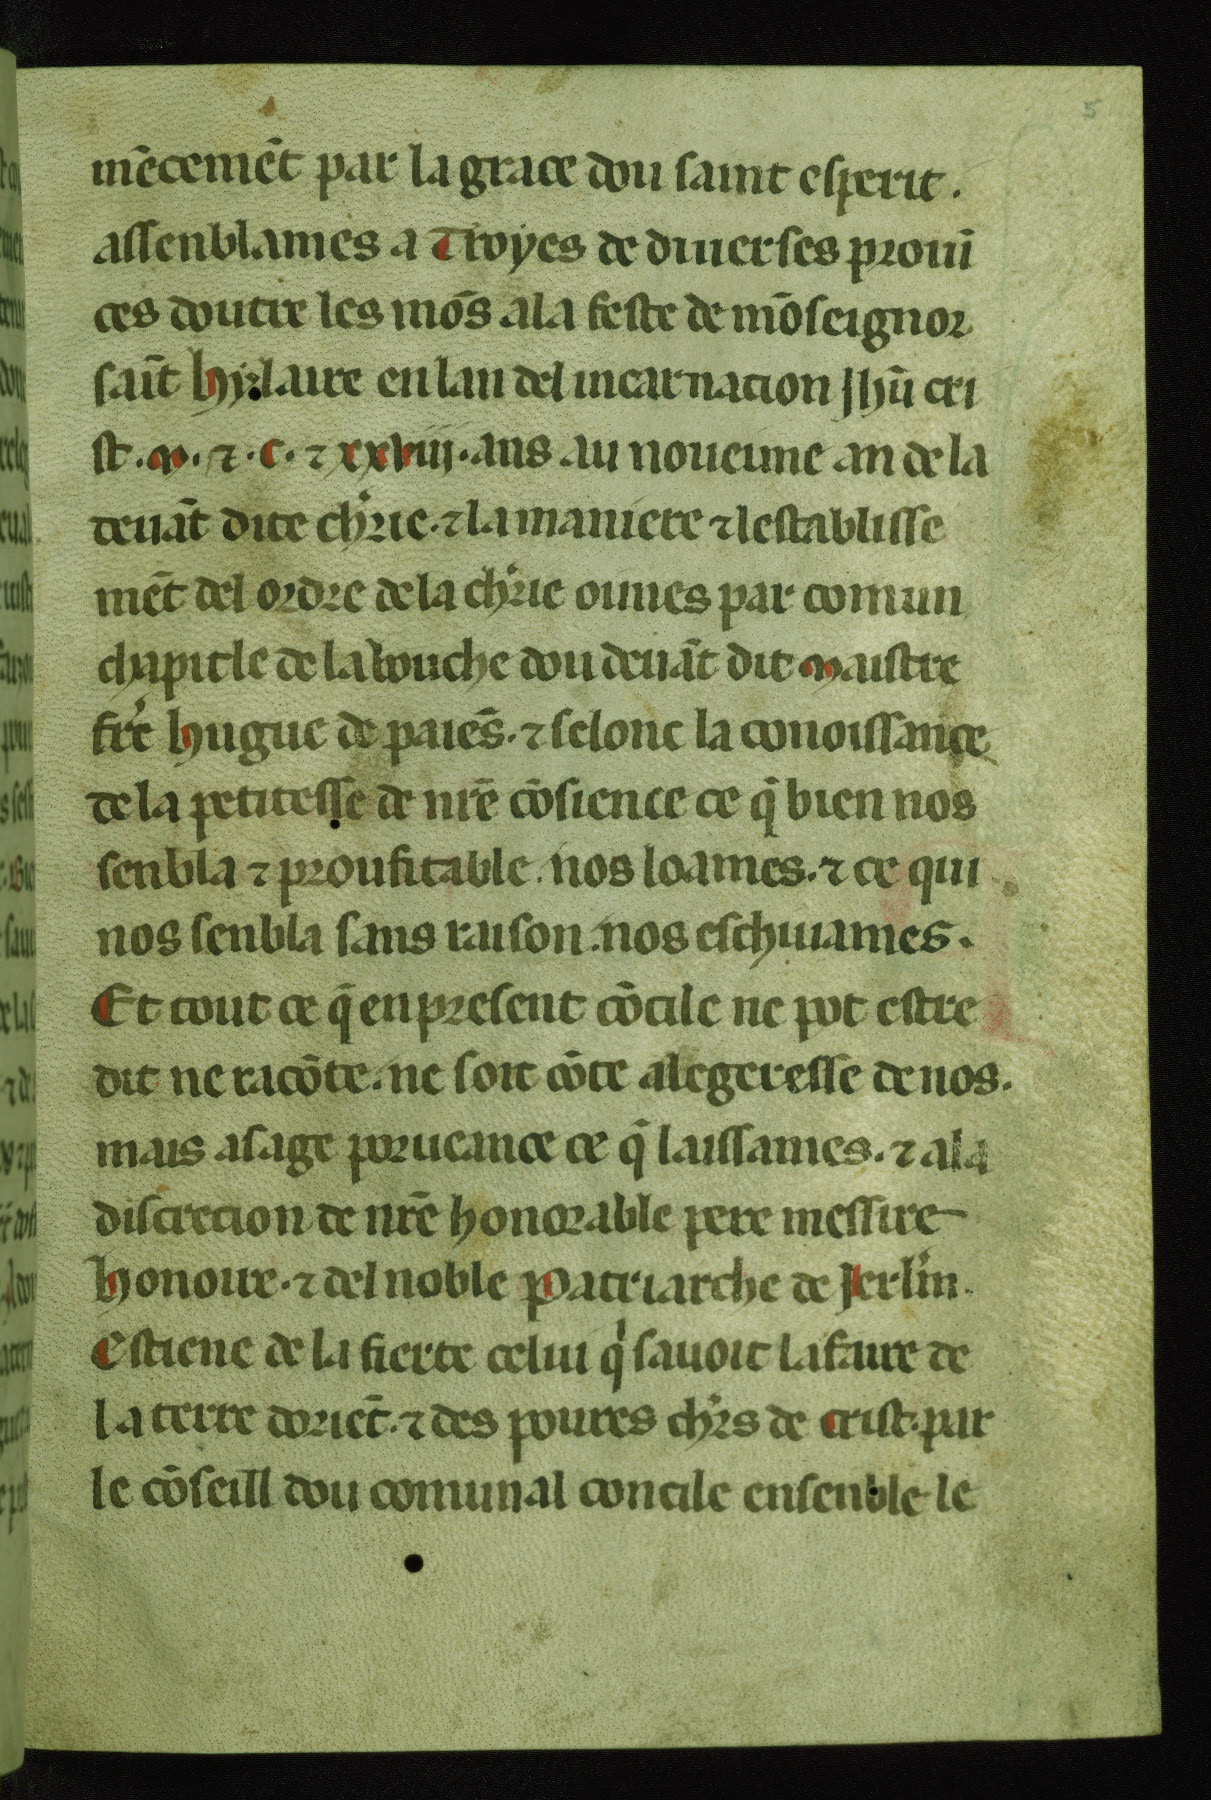 5
mēcemēt par la grace dou saint esperit.
assenblames a Troyes de diuerses prouī
ces doutre les mōs ala feste de mōseignor
saīt hylaire en lan del incarnacion jhū cri
st .m. ⁊ .c. ⁊ xxviij. ans au noueime an de la
deuāt dite chꝰrie. ⁊ la maniere ⁊ lestablisse
mēt del ordre de la chꝰrie oimes par comun
chapitle de la bouche dou deuāt dit maistre
frē hugue de paiēs. ⁊ selonc la conoissance
de la petitesse de nrē cōsience ce q̄ bien nos
senbla ⁊ proufitable. nos loames. ⁊ ce qui
nos senbla sans raison. nos eschiuames.
Et tout ce q̄ en present cōcile ne pot estre
dit ne racōte. ne soit cōte alegeresse de nos.
mais asage porueance ce q̄ laissames. ⁊ ala
discrecion de nrē honorable pere messire
honoire. ⁊ del noble patriarche de jerlm̄.
Estiene de la fierte celui qⁱ sauoit lafaire de
la terre doriēt. ⁊ des poures chꝰrs de crist. par
le cōseill dou comunal concile ensenble le